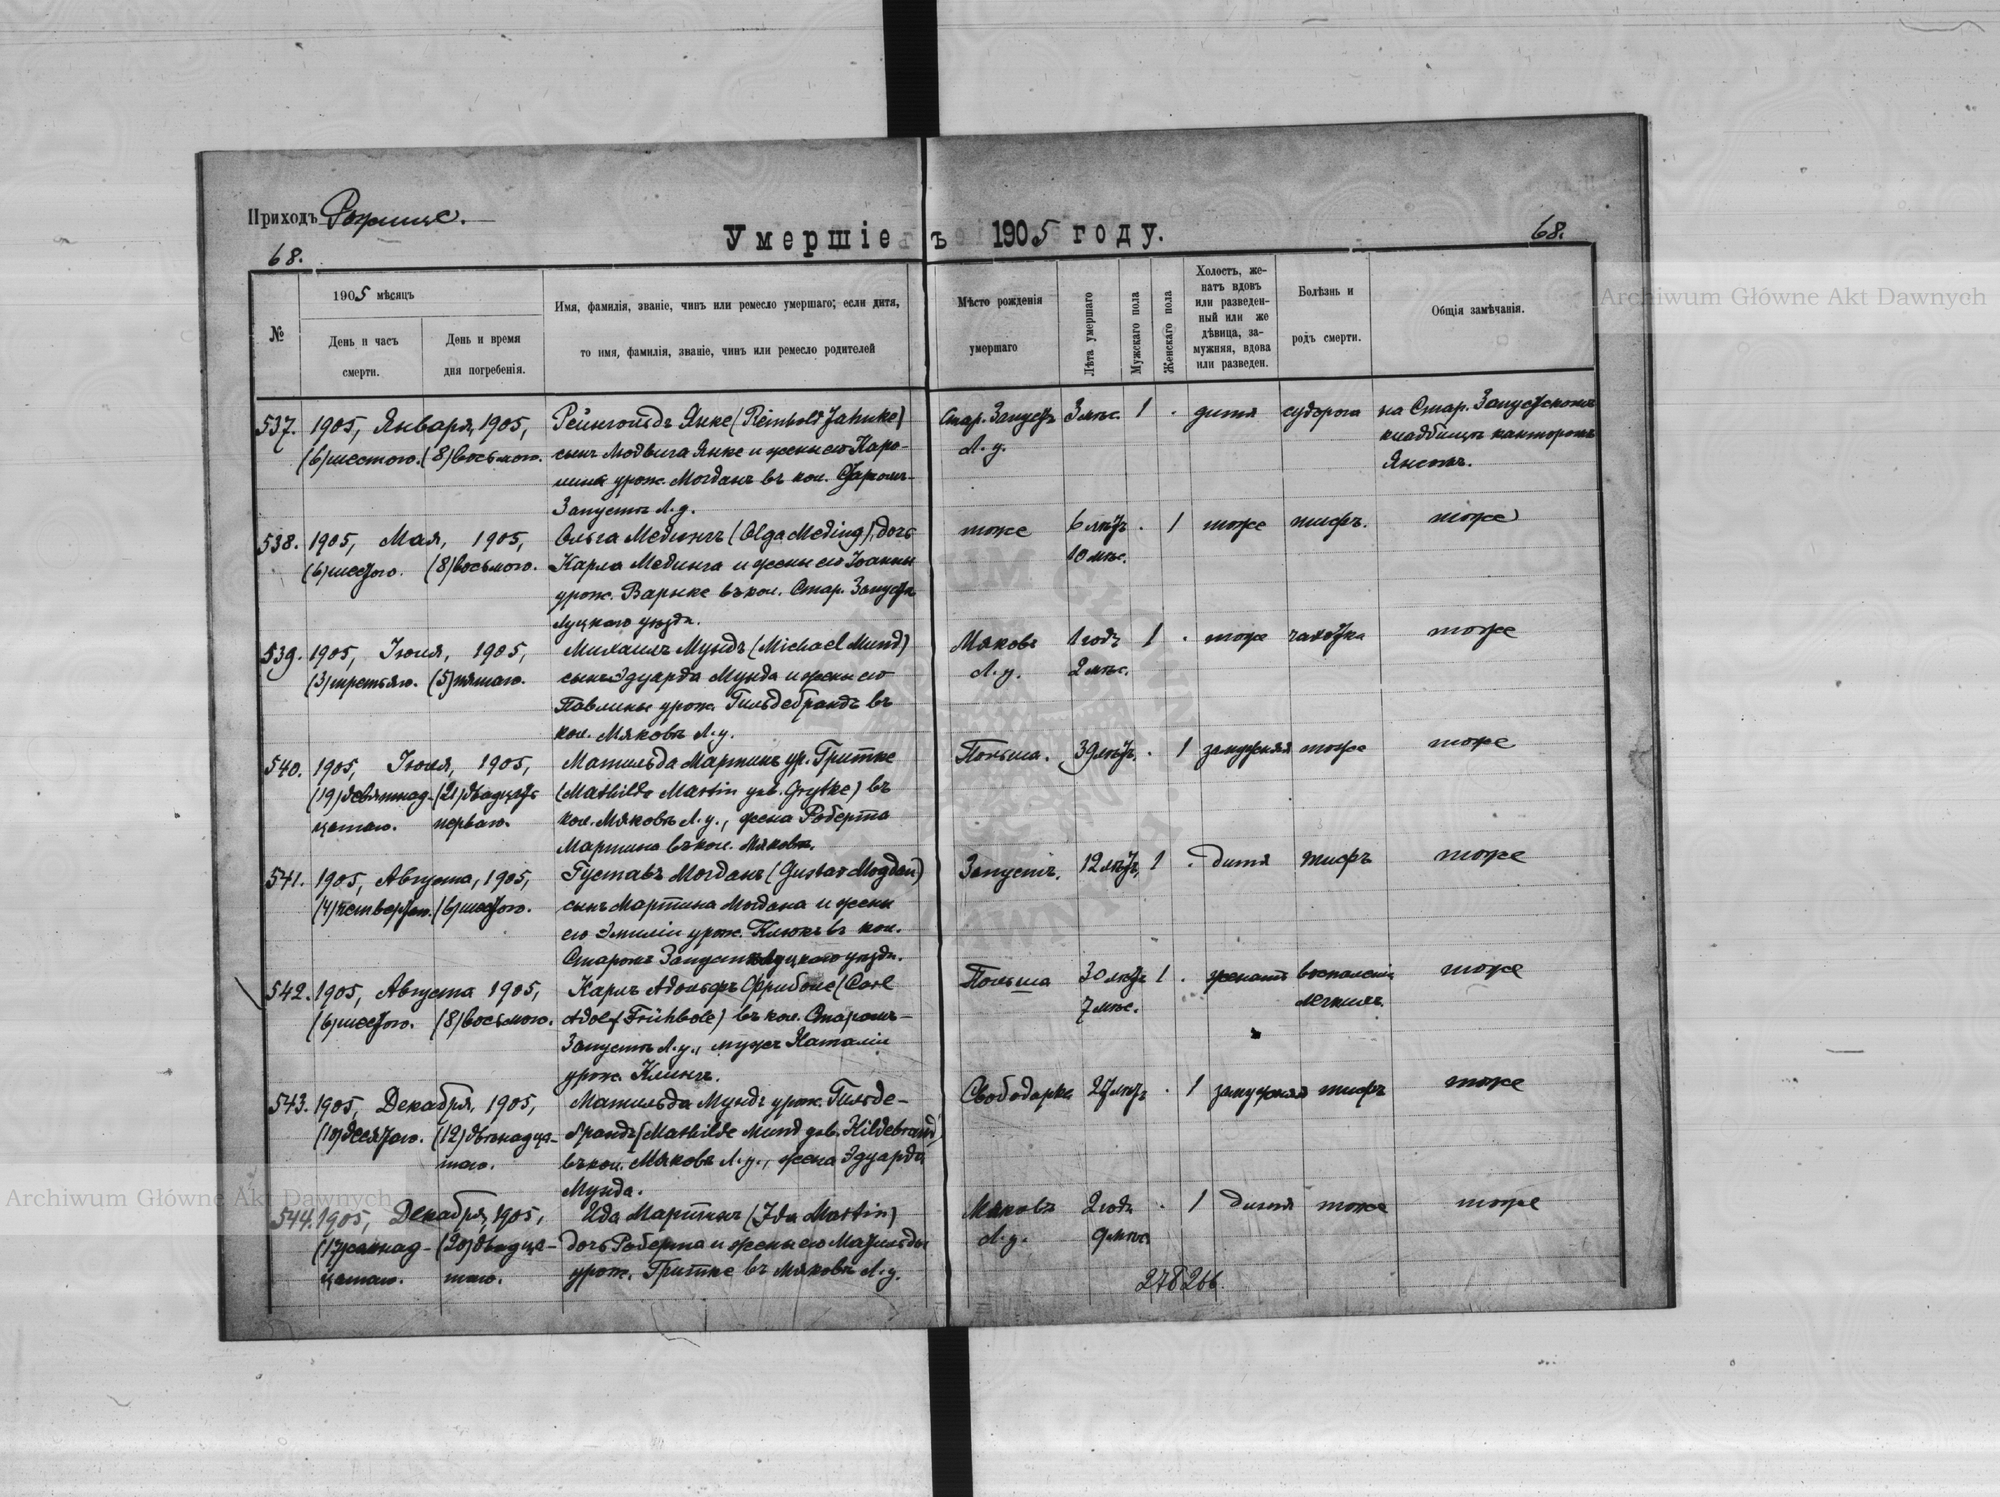 Приходъ Рожище.
Умершіе въ 1905 году.
68.
68.
№
1905 мѣсяцъ
День и часъ смерти.
День и время дня погребенія.
Имя, фамилія, званіе, чинъ или ремесло умершаго; если дитя,
то имя, фамилія, званіе, чинъ или ремесло родителей
Мѣсто рожденія
умершаго
Лѣта умершаго
Мужскаго пола
Женскаго пола
Холостъ, же-
натъ вдовъ
или разведен-
ный или же
дѣвица, за-
мужняя, вдова
или разведен.
Болѣзнь и
родъ смерти.
Общія замѣчанія.
537. 1905, Января, 1905, Рейнгольдъ Янке (Reinhold Jahnke) Стар. Запустъ 3 мѣс. 1 . дитя судорога на Стар. Запустскомъ
(6) шестого. (8) восьмого. сынъ Людвига Янке и жены его Каро- Л. у. кладбищѣ канторомъ
лины урож. Могданъ въ кол. Старомъ- Янсомъ.
Запустѣ Л. у.
538. 1905, Мая, 1905, Ольга Медингъ (Olga Meding), дочь тоже 6 лѣтъ . 1 тоже тифъ. тоже
(6) шестого. (8) восьмого. Карла Мединга и жены его Іоанны 10 мѣс.
урож. Варнке въ кол. Стар. Запустѣ
Луцкаго уѣзда.
539. 1905, Іюля, 1905, Михаилъ Мундъ (Michael Mund) Маковъ 1 годъ 1 . тоже чахотка тоже
(3) третьяго. (5) пятаго. сынъ Эдуарда Мунда и жены его Л. у. 2 мѣс.
Павлины урож. Гильдебрандъ въ
кол. Маковъ Л. у.
540. 1905, Іюля, 1905, Матильда Мартинъ ур. Гритке Польша. 39 лѣтъ . 1 замужняя тоже тоже
(19) девятнад- (21) двадцать (Mathilde Martin geb. Grytke) въ
цатаго. перваго. кол. Маковъ Л. у., жена Роберта
Мартина въ кол. Маковъ.
541. 1905, Августа, 1905, Густавъ Могданъ (Gustav Mogdan) Запустъ. 12 лѣтъ 1 . дитя тифъ тоже
(4) четвертаго. (6) шестого. сынъ Мартина Могдана и жены
его Эмиліи урож. Клюкъ въ кол.
Старомъ Запустѣ Луцкаго уѣзда.
542. 1905, Августа 1905, Карлъ Адольфъ Фриболе (Carl Польша 30 лѣтъ 1 . женатъ воспаленіе тоже
(6) шестого. (8) восьмого. Adolf Frühbole) въ кол. Старомъ- 7 мѣс. легкихъ.
Запустѣ Л. у., мужъ Наталіи
урож. Клингъ.
543. 1905, Декабря, 1905, Матильда Мундъ урож. Гильде- Свободарка 27 лѣтъ . 1 замужняя тифъ тоже
(10) десятаго. (12) двѣнадца- брандъ (Mathilde Mund geb. Hildebrand)
таго. въ кол. Маковъ Л. у., жена Эдуарда
Мунда.
544. 1905, Декабря, 1905, Ида Мартинъ (Ida Martin) Маковъ 2 года . 1 дитя тоже тоже
(17) семнад- (20) двадца- дочь Роберта и жены его Матильды Л. у. 9 мѣс.
цатаго. таго. урож. Гритке въ Маковъ Л. у.
278 266.
Archiwum Główne Akt Dawnych
Archiwum Główne Akt Dawnych